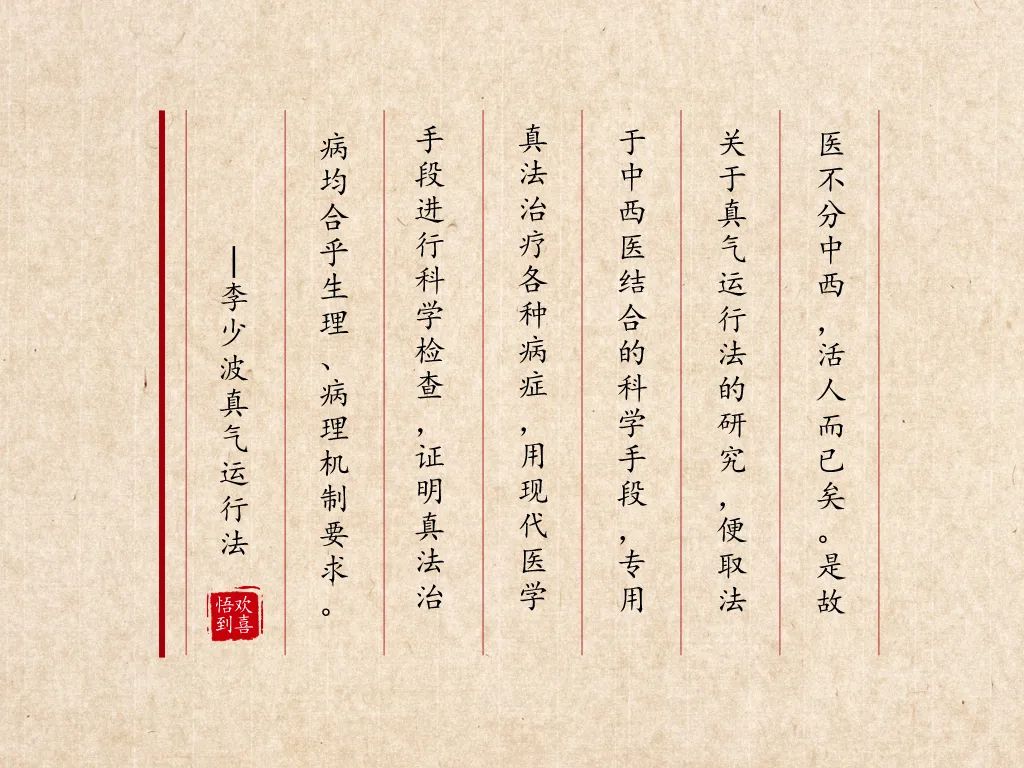 医不分中西，活人而已矣。是故
关于真气运行法的研究，便取法
于中西医结合的科学手段，专用
真法治疗各种病症，用现代医学
手段进行科学检查，证明真法治
病均合乎生理、病理机制要求。
—李少波真气运行法
欢喜
悟到